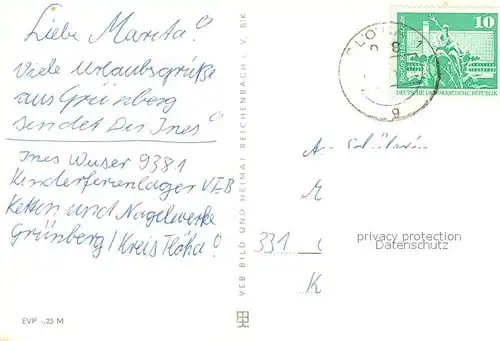 Liebe Marita!
Viele Urlaubsgrüße
aus Grünberg
sendet Dir Ines
Ines Wuser 9381
Kinderferienlager VEB
Ketten und Nagelwerke
Grünberg / Kreis Flöha!
EVP -,25 M
VEB BILD UND HEIMAT REICHENBACH i. V.
10
DEUTSCHE DEMOKRATISCHE REPUBLIK
An Schülerin
M
331
K
privacy protection
Datenschutz